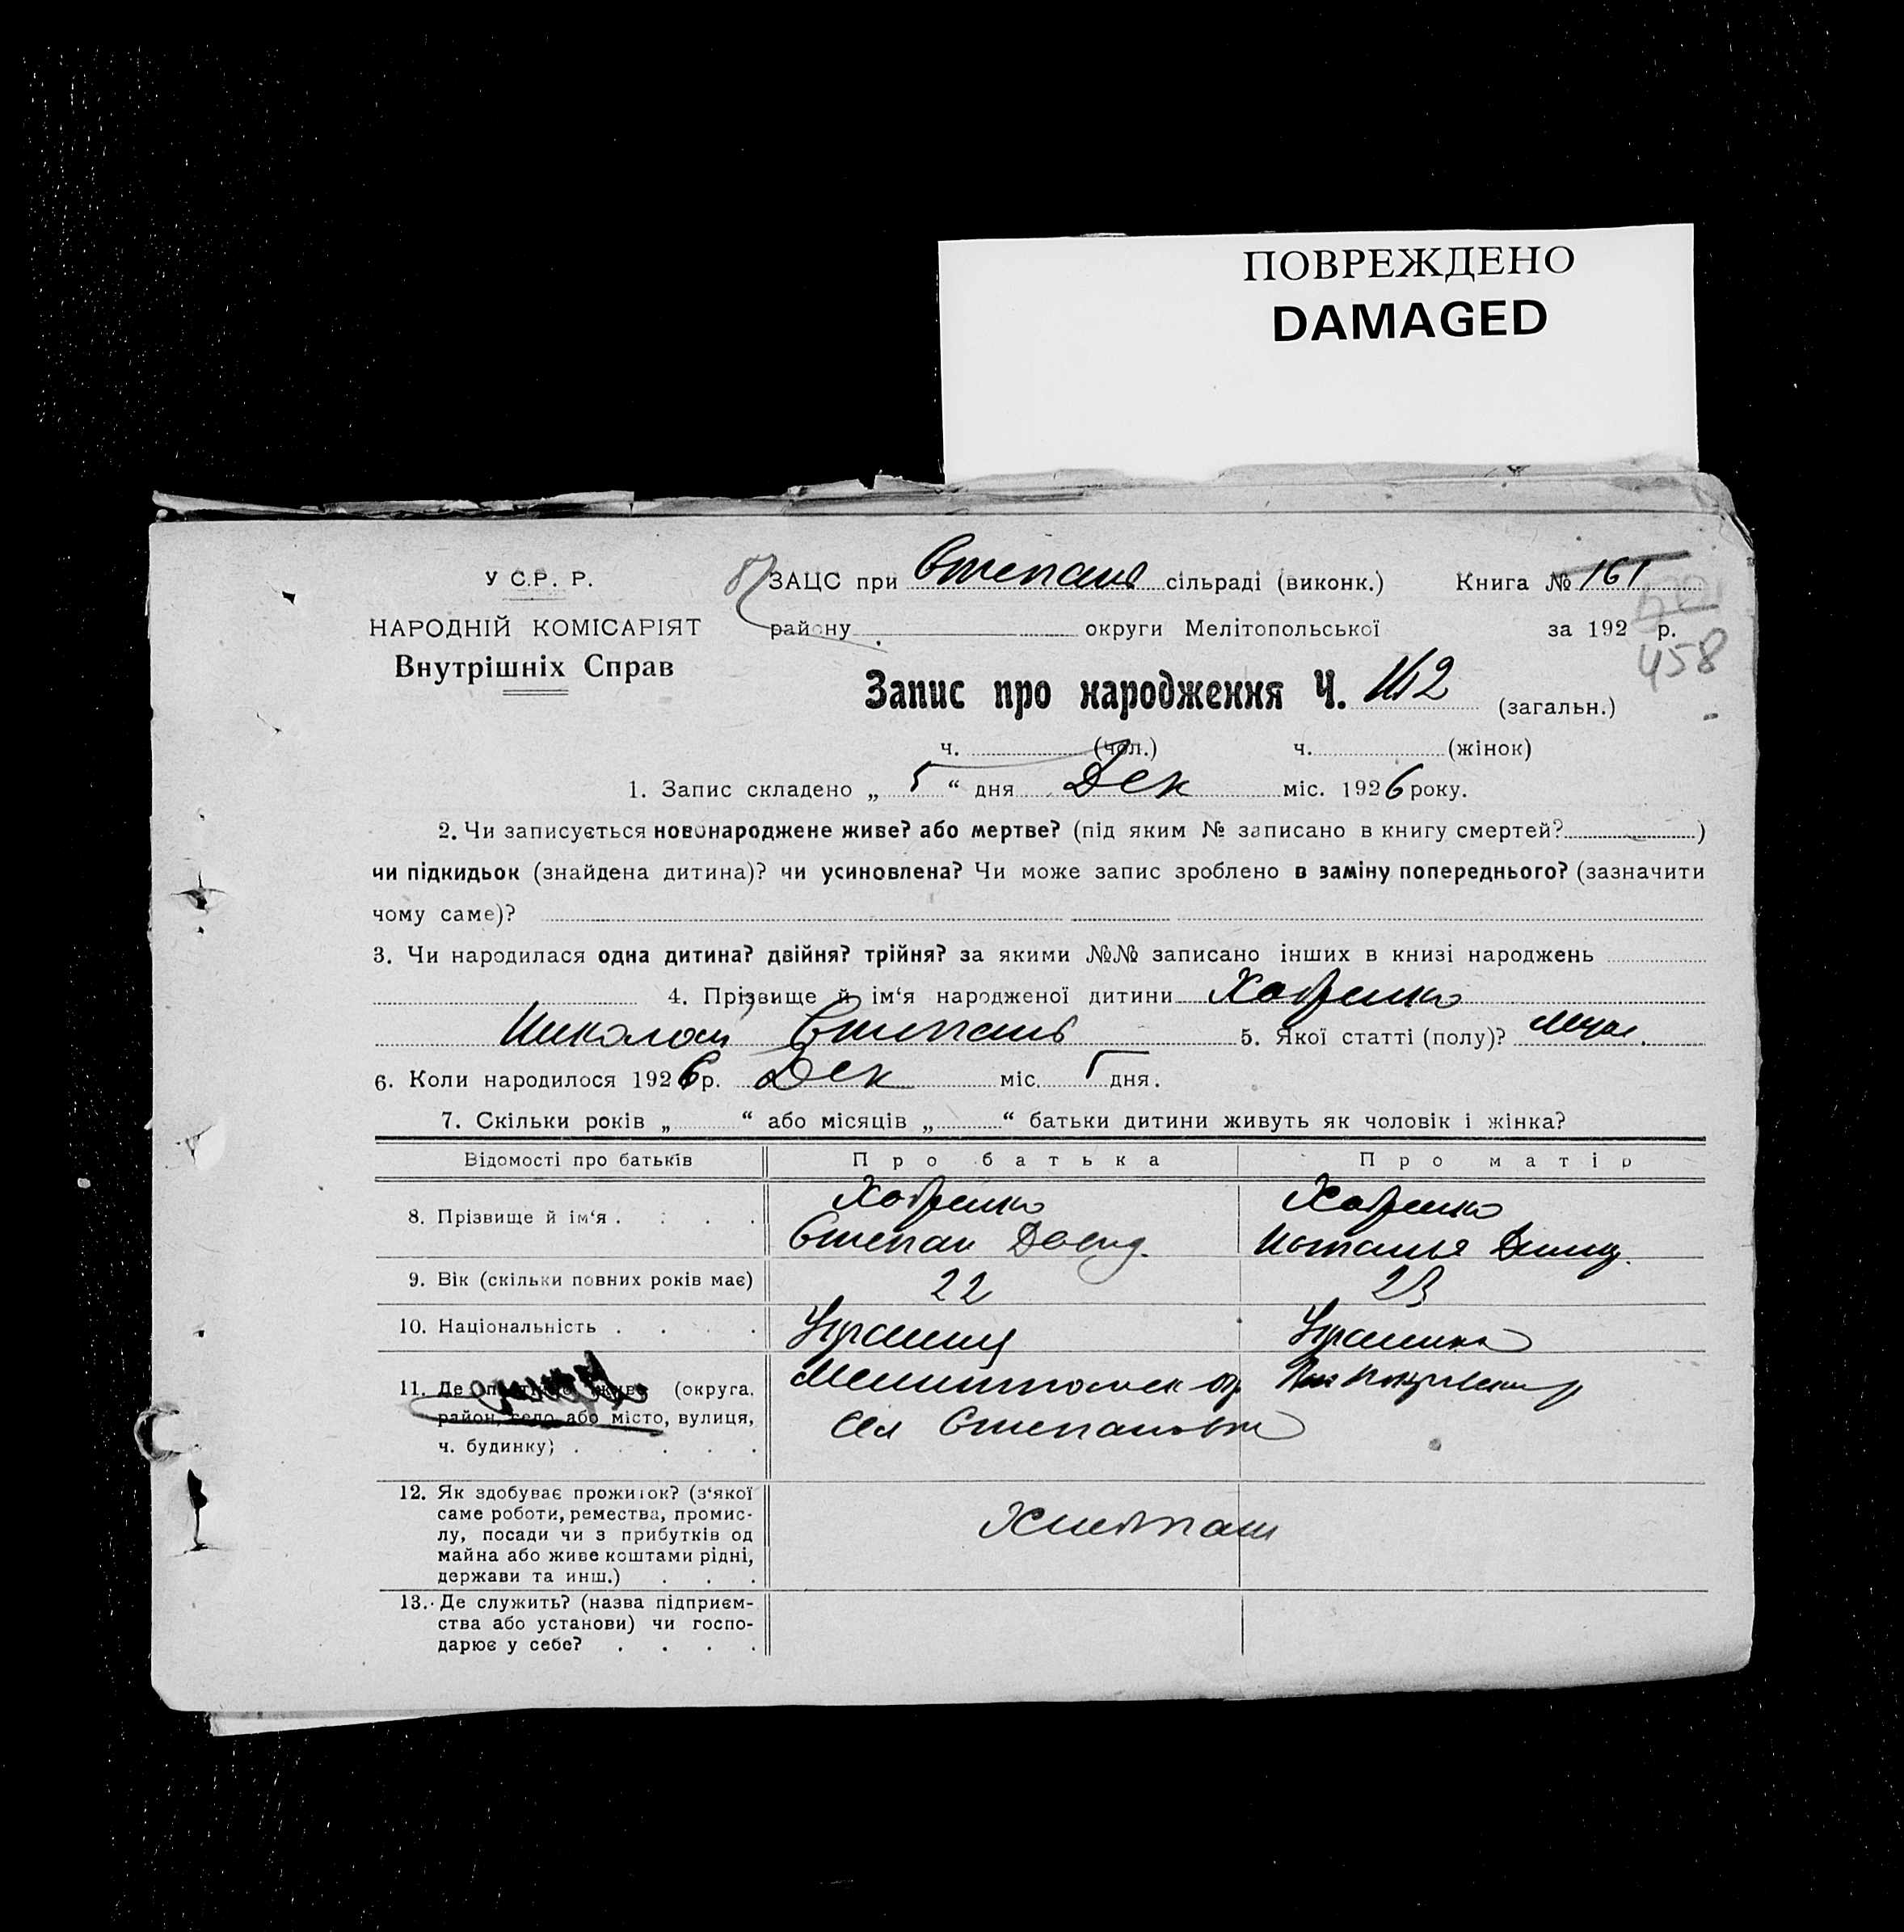 ПОВРЕЖДЕНО
DAMAGED
У С.Р. Р.
НАРОДНІЙ КОМІСАРІЯТ
Внутрішніх Справ
ЗАЦС при Степанів сільраді (виконк.) Книга № 161
району округи Мелітопольської за 192 р.
458
Запис про народження Ч. 162 (загальн.)
ч. (чол.) ч. (жінок)
1. Запис складено „ 5 “ дня Дек міс. 1926 року.
2. Чи записується новонароджене живе? або мертве? (під яким № записано в книгу смертей? )
чи підкидьок (знайдена дитина)? чи усиновлена? Чи може запис зроблено в заміну попереднього? (зазначити
чому саме)?
3. Чи народилася одна дитина? двійня? трійня? за якими №№ записано інших в книзі народжень
4. Прізвище й ім‘я народженої дитини Ховренко
Николай Степанов 5. Якої статті (полу)? муж.
6. Коли народилося 1926 р. Дек міс. 5 дня.
7. Скільки років „ “ або місяців „ “ батьки дитини живуть як чоловік і жінка?
Відомості про батьків Про батька Про матір
8. Прізвище й ім‘я . . . . Ховренко Ховренко
Степан Давид. Наталья
9. Вік (скільки повних років має) 22 23
10. Національність . . . . Украинц Украинка
11. Де постійно живе (округа, Мелитополск окр
район, село або місто, вулиця, Сел Степановка
ч. будинку) . . . . .
12. Як здобуває прожиток? (з‘якої
саме роботи, ремества, промис-
лу, посади чи з прибутків од Хлебпаш
майна або живе коштами рідні,
держави та инш.) . . .
13. Де служить? (назва підприєм-
ства або установи) чи госпо-
дарює у себе? . . . .